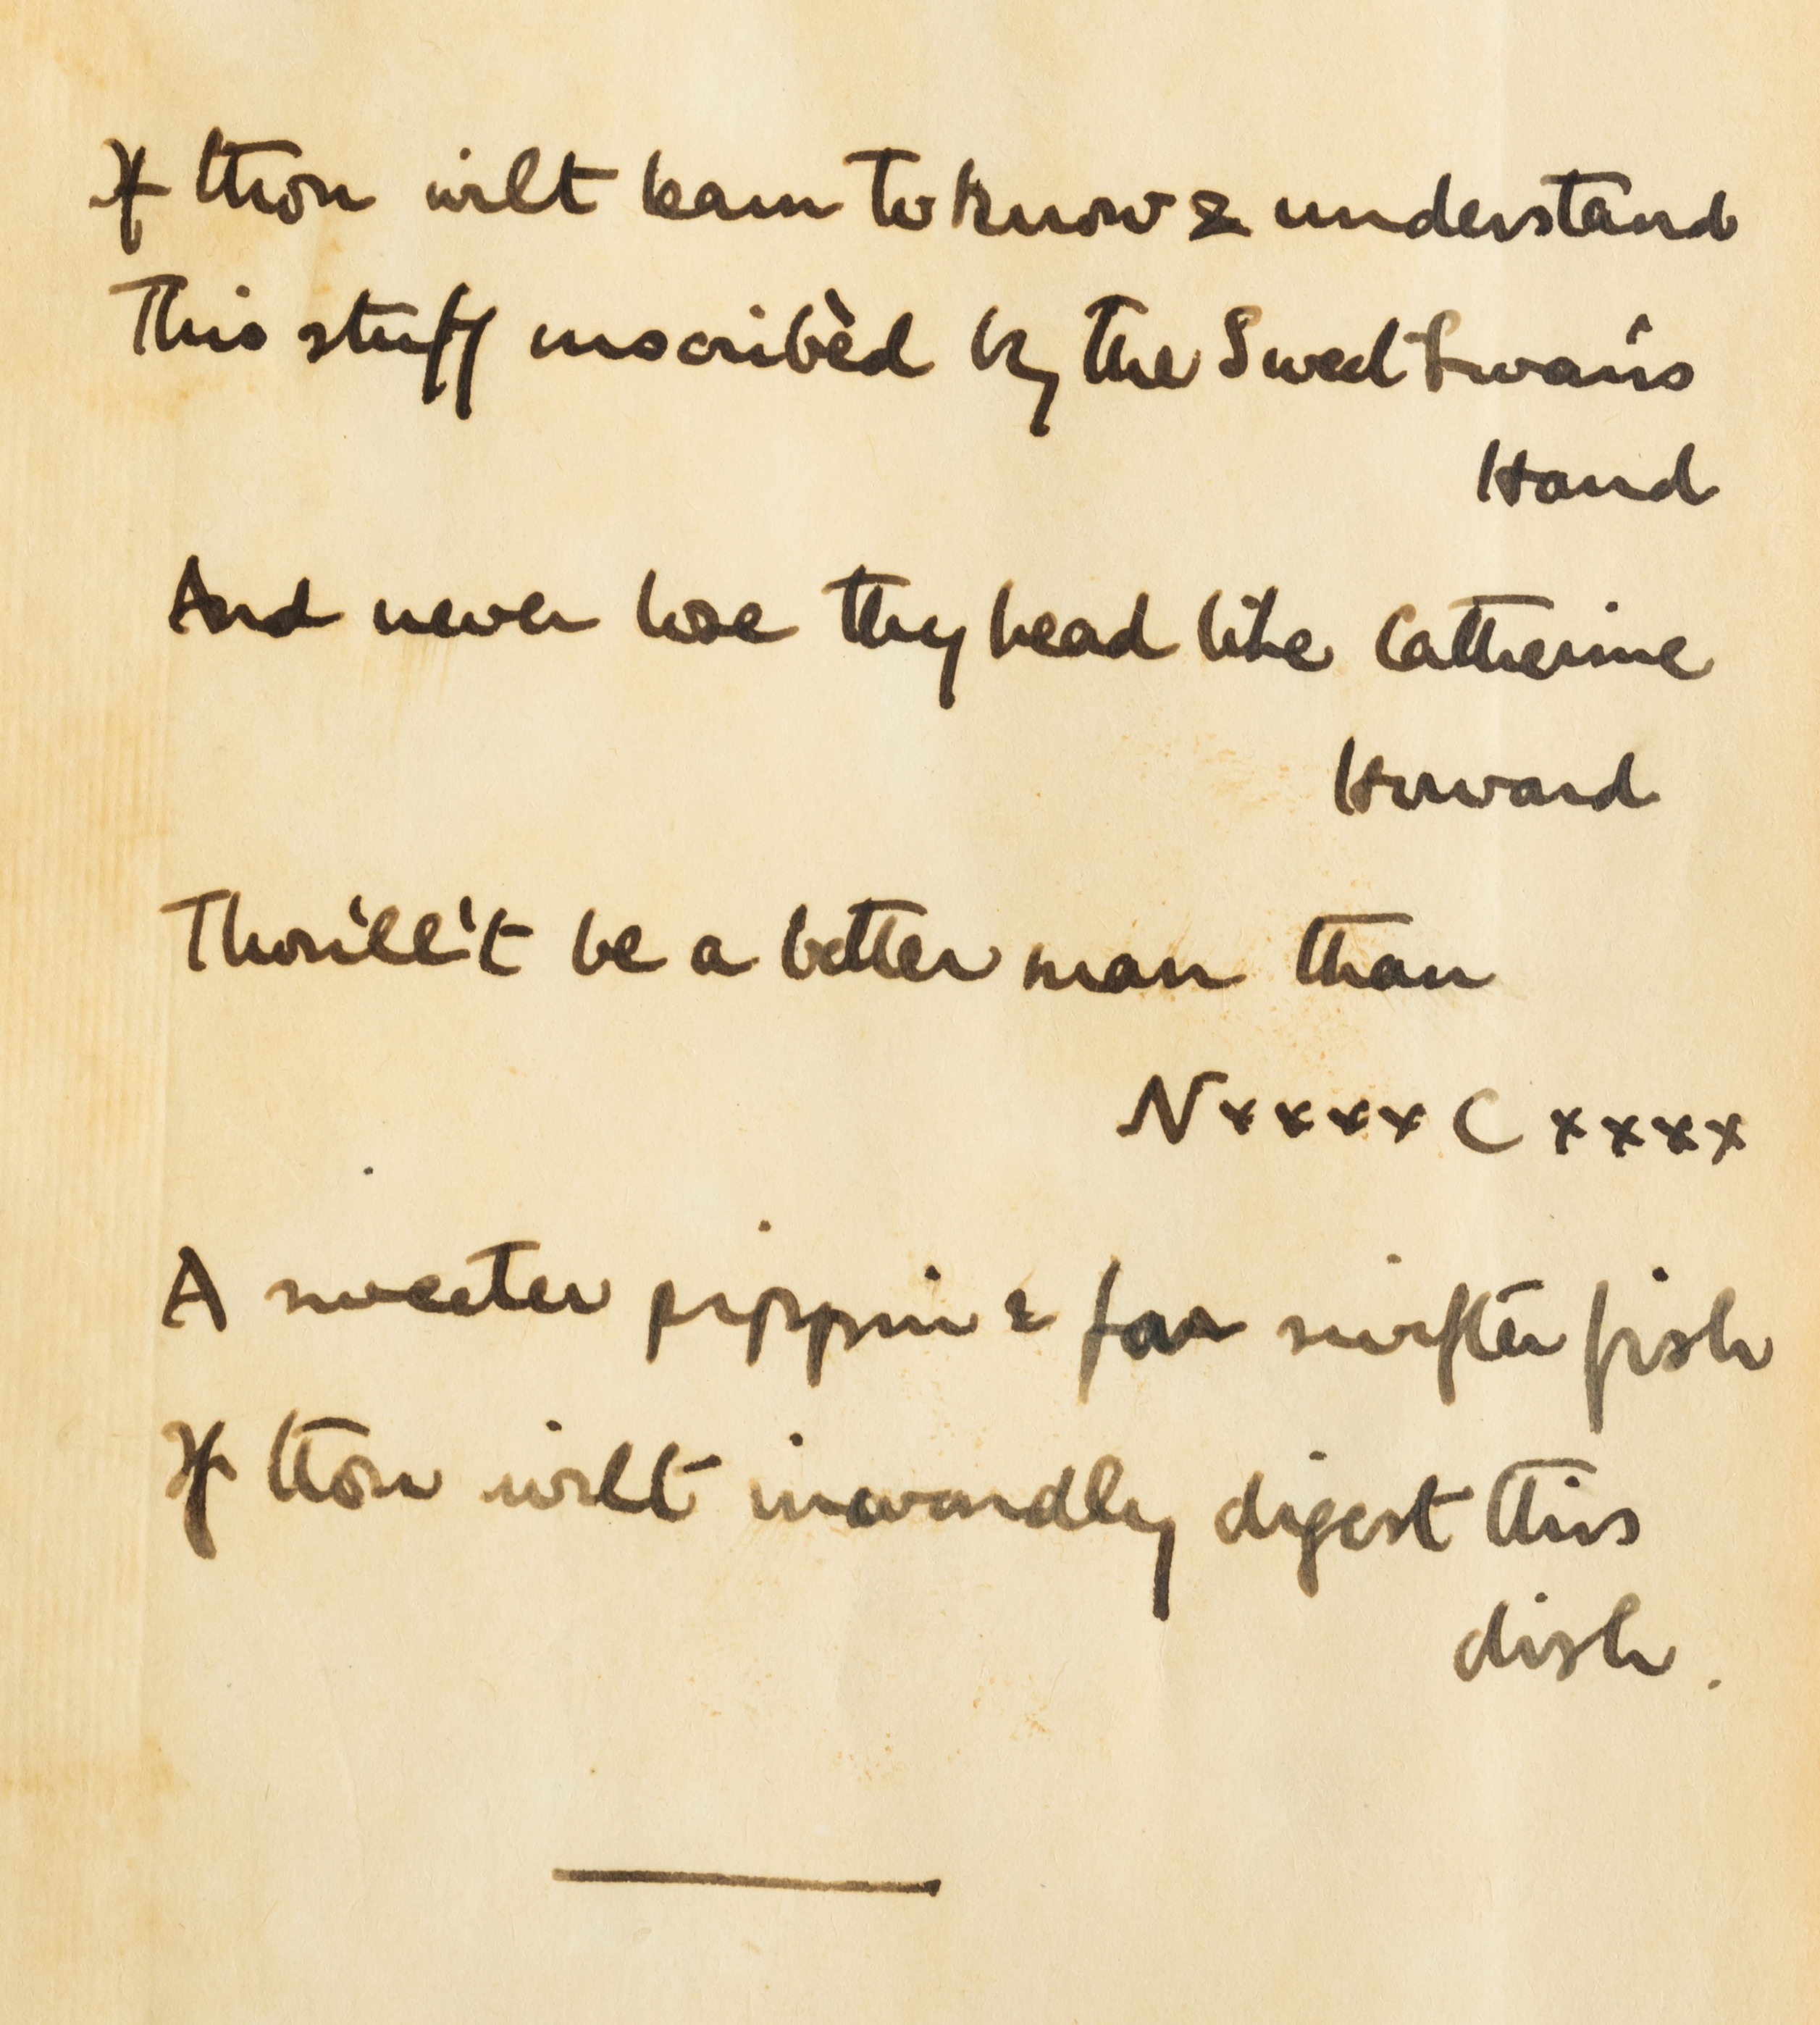 If thou wilt learn to know & understand
This stuff inscribèd by the Sweet Swan's
Hand
And never lose thy head like Catherine
Howard
Thou'll't be a better man than
Nxxxx Cxxxx
A sweeter pippin & far swifter fish
If thou wilt inwardly digest this
dish.